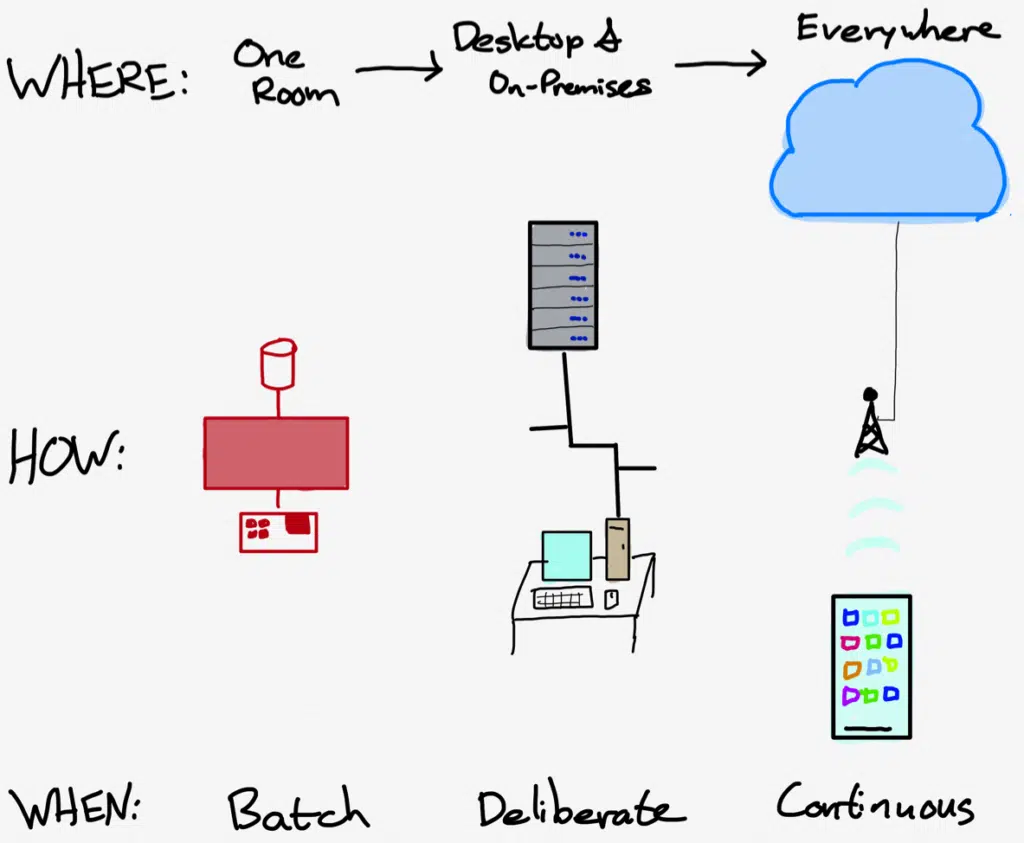 WHERE:
One
Room
Desktop &
On-Premises
Everywhere
HOW:
WHEN:
Batch
Deliberate
Continuous